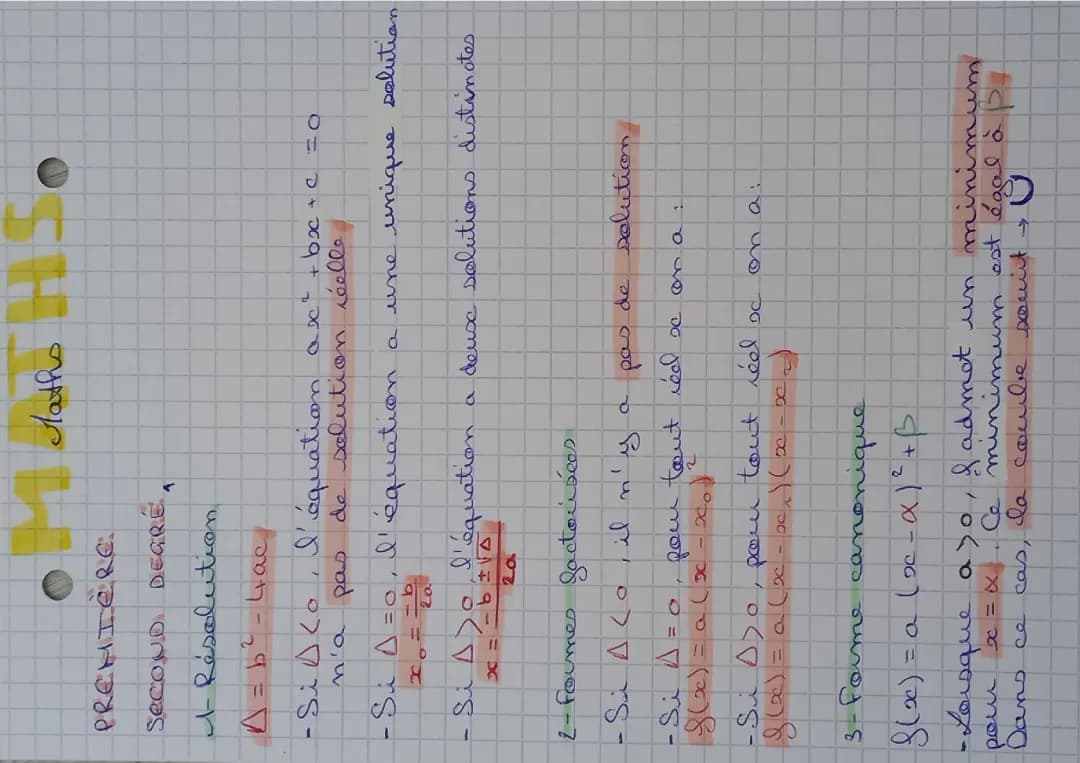 MATHS
Maths
PREMIÈRE.
SECOND DEGRÉ.
1 - Résolution
Δ = b² - 4ac
- Si Δ < 0, l'équation ax² + bx + c = 0
n'a pas de solution réelle
- Si Δ = 0, l'équation a une unique solution
x₀ = -b/2a
- Si Δ > 0, l'équation a deux solutions distinctes
x = -b ± √Δ/2a
2 - Formes factorisées
- Si Δ < 0, il n'y a pas de solution
- Si Δ = 0, pour tout réel x on a :
f(x) = a(x - x₀)²
- Si Δ > 0, pour tout réel x on a :
f(x) = a(x - x₁)(x - x₂)
3 - Forme canonique
f(x) = a(x - α)² + β
- Lorsque a > 0, f admet un minimum
pour x = α. Ce minimum est égal à β
Dans ce cas, la courbe sourit → ∪